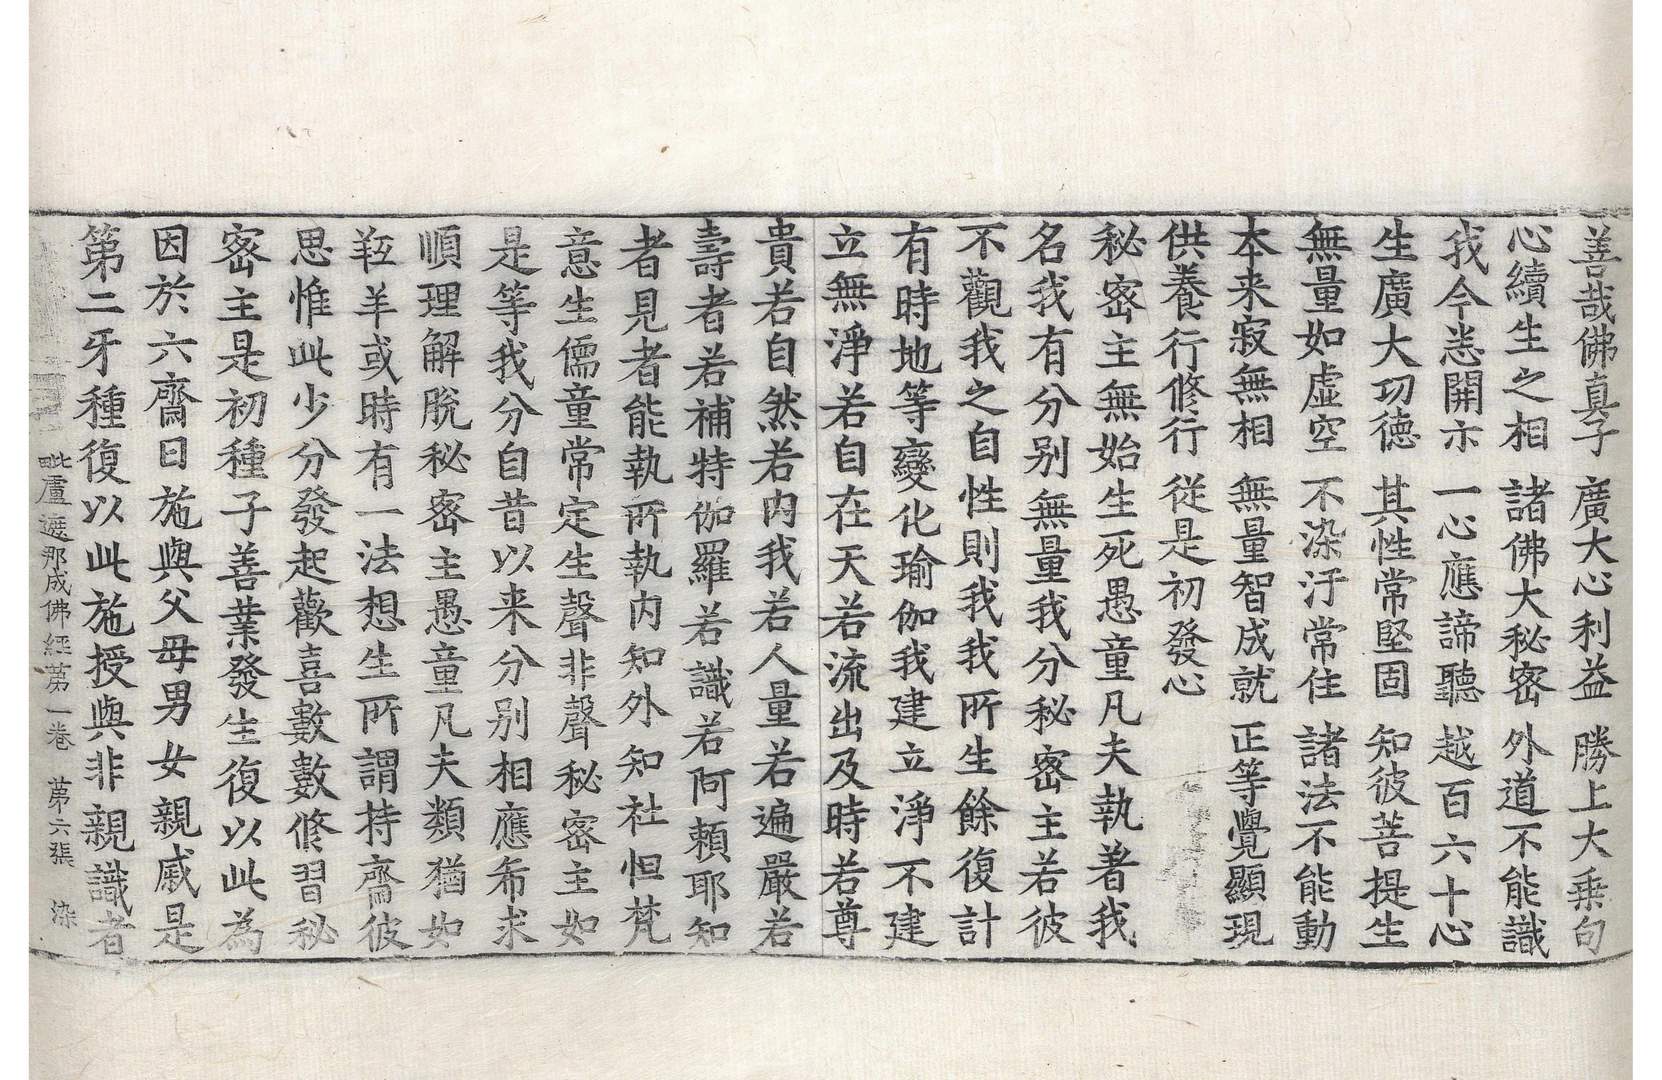 善哉佛真子 廣大心利益 勝上大乗句
心續生之相 諸佛大秘密 外道不能識
我今悉開示 一心應諦聽 越百六十心
生廣大功德 其性常堅固 知彼菩提生
無量如虛空 不染汙常住 諸法不能動
本来寂無相 無量智成就 正等覺顯現
供養行修行 從是初發心
秘密主無始生死愚童凡夫執著我
名我有分别無量我分秘密主若彼
不觀我之自性則我我所生餘復計
有時地等變化瑜伽我建立淨不建
立無淨若自在天若流出及時若尊
貴若自然若内我若人量若遍嚴若
壽者若補特伽羅若識若阿賴耶知
者見者能執所執内知外知社怛梵
意生儒童常定生聲非聲秘密主如
是等我分自昔以来分别相應希求
順理解脫秘密主愚童凡夫類猶如
羝羊或時有一法想生所謂持齋彼
思惟此少分發起歡喜數數修習秘
密主是初種子善業發生復以此為
因於六齋日施與父母男女親戚是
第二牙種復以此施授與非親識者
毗盧遮那成佛經第一卷 第六張 染